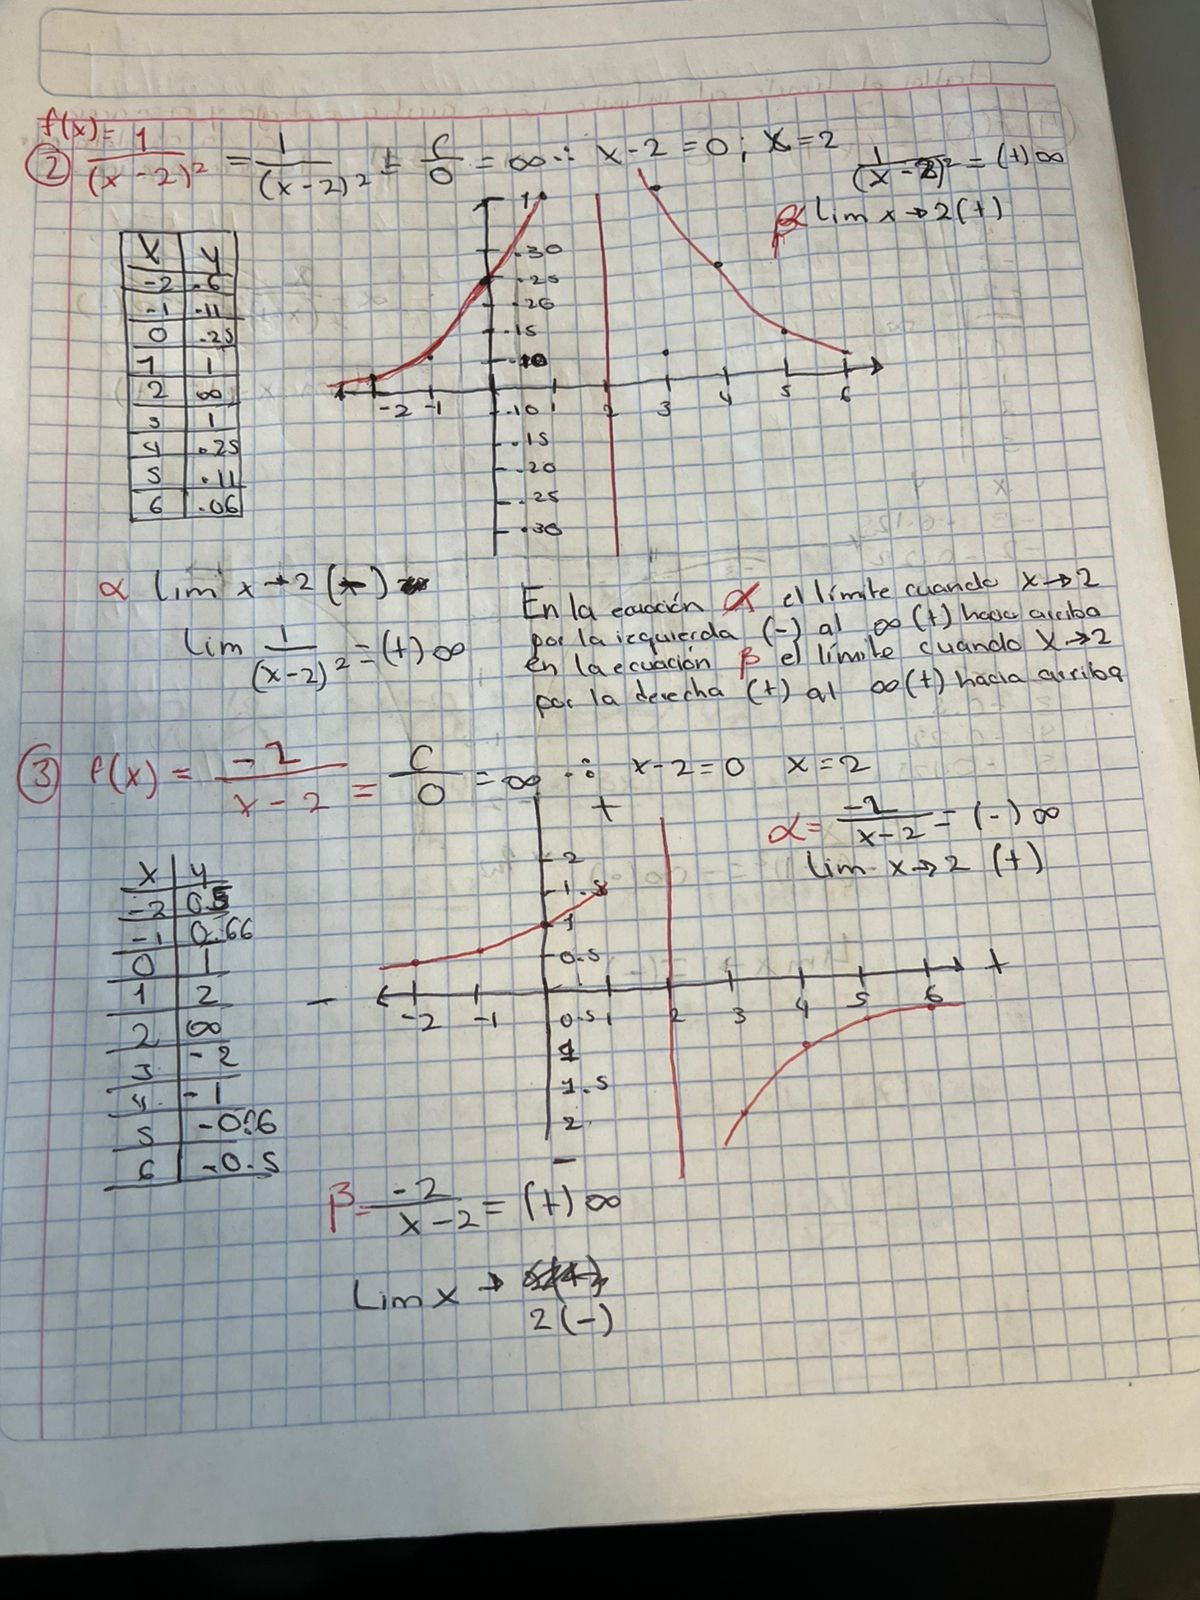 f(x)= 1
② 1/(x-2)² = 1/(x-2)² = C/0 = ∞ ∴ x-2=0; x=2
1/(x-2)² = (+)∞
β lim x→2(+)
x | y
-2 | .6
-1 | .11
0 | .25
1 | 1
2 | ∞
3 | 1
4 | .25
5 | .11
6 | .06
1
.30
.25
.20
.15
.10
-2 -1 1 2 3 4 5 6
.10
.15
.20
.25
.30
α lim x→2 (-)
lim 1/(x-2)² = (+)∞
En la ecuación α el límite cuando x→2
por la izquierda (-) al ∞ (+) hacia arriba
en la ecuación β el límite cuando x→2
por la derecha (+) al ∞(+) hacia arriba
③ f(x) = -2/(x-2) = C/0 = ∞ ∴ x-2=0 x=2
α= -2/(x-2) = (-)∞
lim x→2 (+)
x | y
-2 | 0.5
-1 | 0.66
0 | 1
1 | 2
2 | ∞
3 | -2
4 | -1
5 | -0.6
6 | -0.5
+
2
1.5
1
0.5
- -2 -1 1 2 3 4 5 6 +
0.5
1
1.5
2
-
β= -2/(x-2) = (+)∞
Lim x →
2(-)